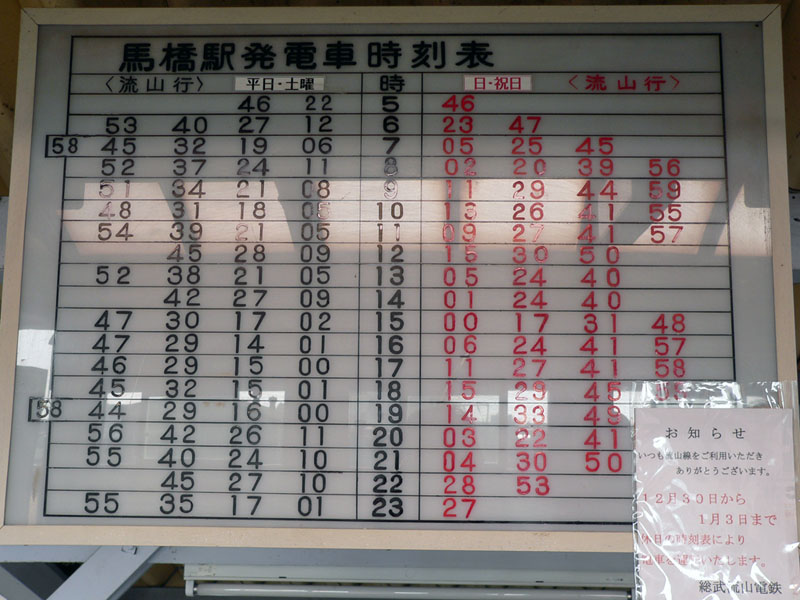 馬橋駅発電車時刻表
〈流山行〉 平日・土曜 時 日・祝日 〈流山行〉
46 22 5 46
53 40 27 12 6 23 47
58 45 32 19 06 7 05 25 45
52 37 24 11 8 02 20 39 56
51 34 21 08 9 11 29 44 59
48 31 18 05 10 13 26 41 55
54 39 21 05 11 09 27 41 57
45 28 09 12 15 30 50
52 38 21 05 13 05 24 40
42 27 09 14 01 24 40
47 30 17 02 15 00 17 31 48
47 29 14 01 16 06 24 41 57
46 29 15 00 17 11 27 41 58
45 32 15 01 18 15 29 45
58 44 29 16 00 19 14 33 49
56 42 26 11 20 03 22 41
55 40 24 10 21 04 30 50
45 27 10 22 28 53
55 35 17 01 23 27
お知らせ
いつも流山線をご利用いただき
ありがとうございます。
12月30日から
1月3日まで
休日の時刻表により
電車を運転いたします。
総武流山電鉄